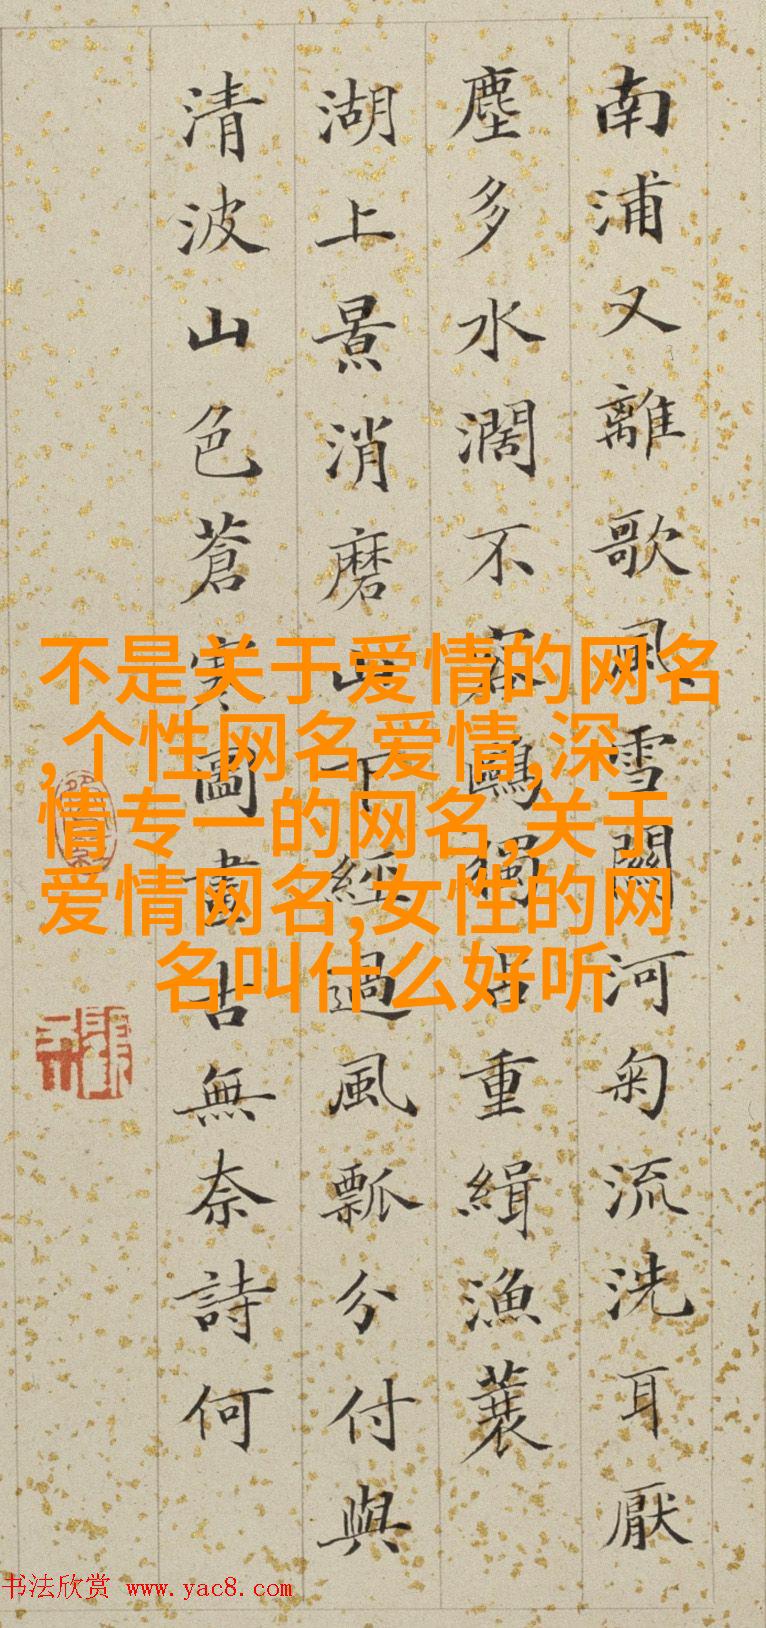 南浦又離歌風雪關河匊流洗耳厭
塵多水濶不容鷗獨占重緝漁蓑
湖上景消磨山下經過風瓢分付與
清波山色蒼寒圖畫古無奈詩何
不是关于爱情的网名
,个性网名爱情,深
情专一的网名,关于
爱情网名,女性的网
名叫什么好听
书法欣赏 www.yac8.com